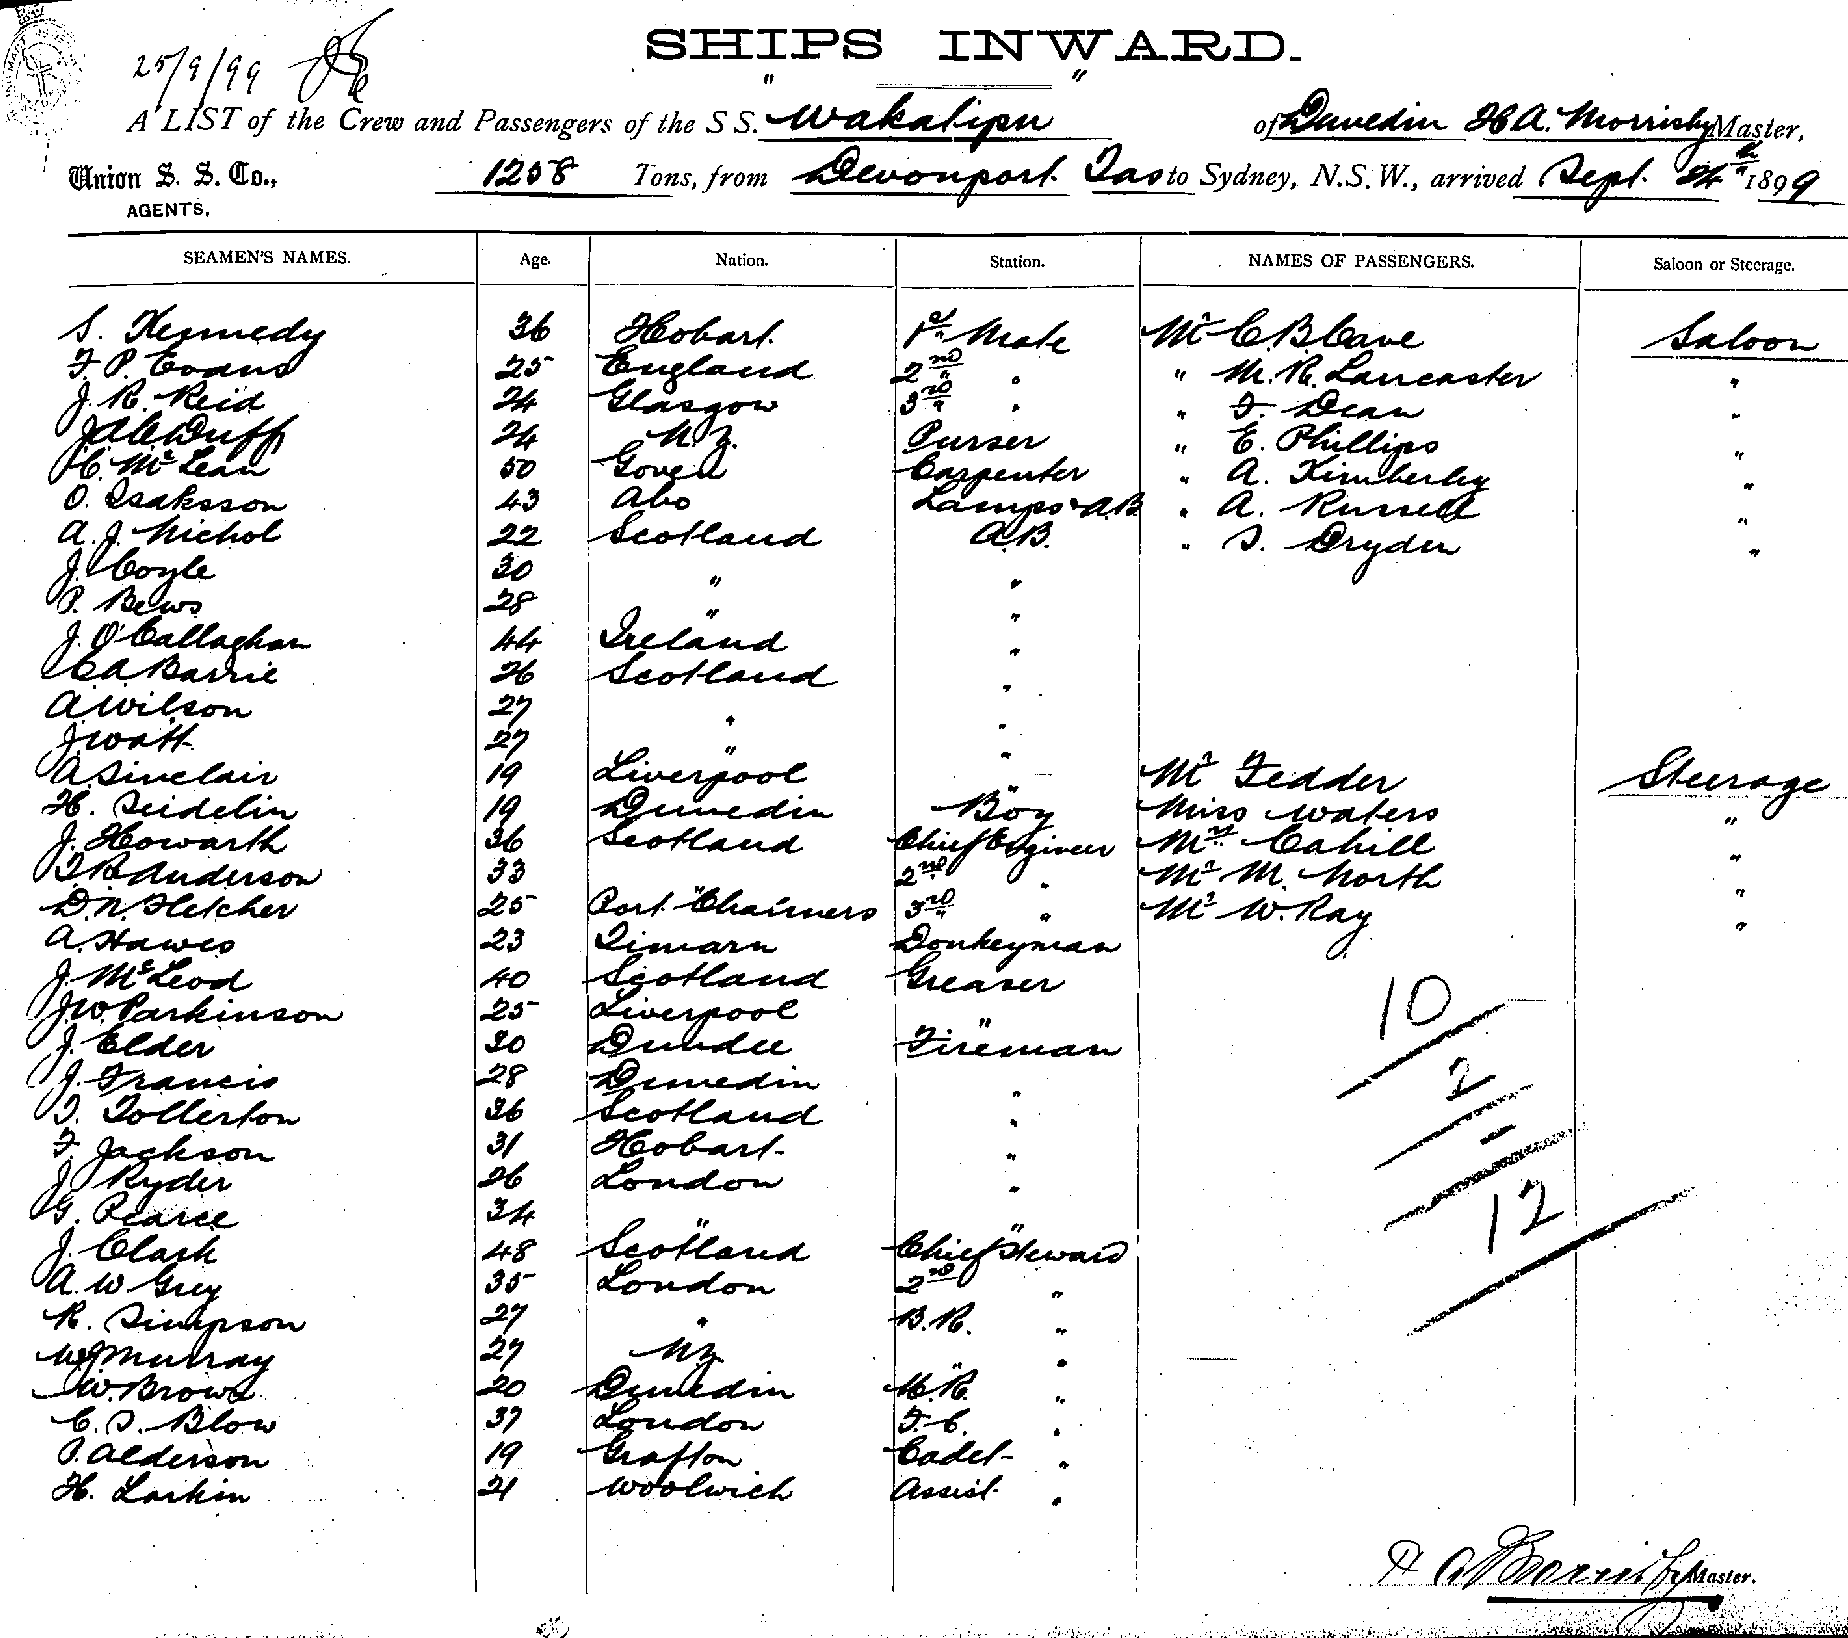 25/9/99
SHIPS INWARD.
A LIST of the Crew and Passengers of the S S. "Wakatipu" of Dunedin H A. Morrisby Master,
Union S. S. Co., 1258 Tons, from Devonport Tas to Sydney, N.S.W., arrived Sept. 24th 1899
AGENTS,
SEAMEN'S NAMES. Age. Nation. Station. NAMES OF PASSENGERS. Saloon or Steerage.
S. Kennedy 36 Hobart 1st Mate Mr C B Cave Saloon
F. P. Evans 25 England 2nd " " M. R. Lancaster "
J. R. Reid 24 Glasgow 3rd " " F. Dean "
Duff 24 N Z. Purser " E. Phillips "
McLean 50 Carpenter " A. Kimberley "
O. Isaksson 43 Abo Lamps & A.B. " A. Russell "
A. J. Nichol 22 Scotland A.B. " S. Dryden "
J. Coyle 30 " "
P. Bews 28 " "
J. O'Callaghan 44 Ireland "
C A Barrie 26 Scotland "
A. Wilson 27 " "
J. Watt 27 " "
A. Sinclair 19 Liverpool " Mr Fedder Steerage
H. Seidelin 19 Dunedin Boy Miss Waters "
J. Howarth 36 Scotland Chief Engineer Mrs Cahill "
Anderson 33 " 2nd " Mr M. North "
D. N. Fletcher 25 Port Chalmers 3rd " Mr W. Ray "
A. Hawes 23 Timaru Donkeyman
J. McLeod 40 Scotland Greaser
J. W. Parkinson 25 Liverpool "
J. Elder 30 Dundee Fireman
J. Francis 28 Dunedin "
T. Tollerton 36 Scotland "
F. Jackson 31 Hobart "
J. Ryder 26 London "
G. Pearce 34 " "
J. Clark 48 Scotland Chief Steward
A. W Grey 35 London 2nd "
R. Simpson 27 " B. R. "
W J Murray 27 N Z. " "
W. Brown 20 Dunedin "
C. S. Blow 37 London F. C. "
P. Alderson 19 Grafton Cadet "
H. Larkin 21 Woolwich Assist "
10
2
-
12
H A Morrisby Master.